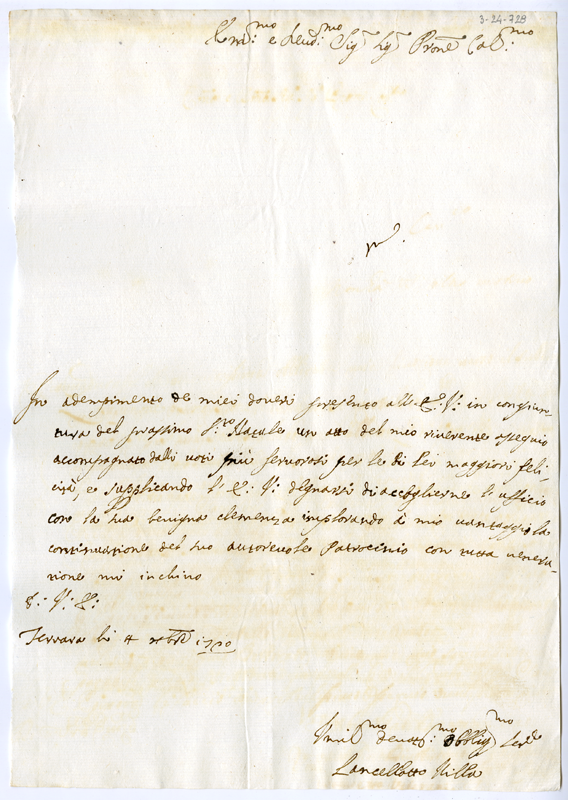 3-24-728
Em.mo e Reud.mo Sig.r Sig.r Prone Col.mo
In adempimento de miei doveri presento all' E.a V.a in congiun-
tura del prossimo S.to Natale un atto del mio riverente ossequio
accompagnato dalli voti più fervorosi per le di Lei maggiori feli-
cità, e supplicando l' E.a V.a degnarsi di accoglierne l' ufficio
con la sua benigna clemenza implorando a mio vantaggio la
continuazione del suo autorevole Patrocinio con tutta venera-
zione mi inchino
Ferrara li xbre 1720
Umil.mo devot.mo obblig.mo Ser.re
Lancellotto Villa